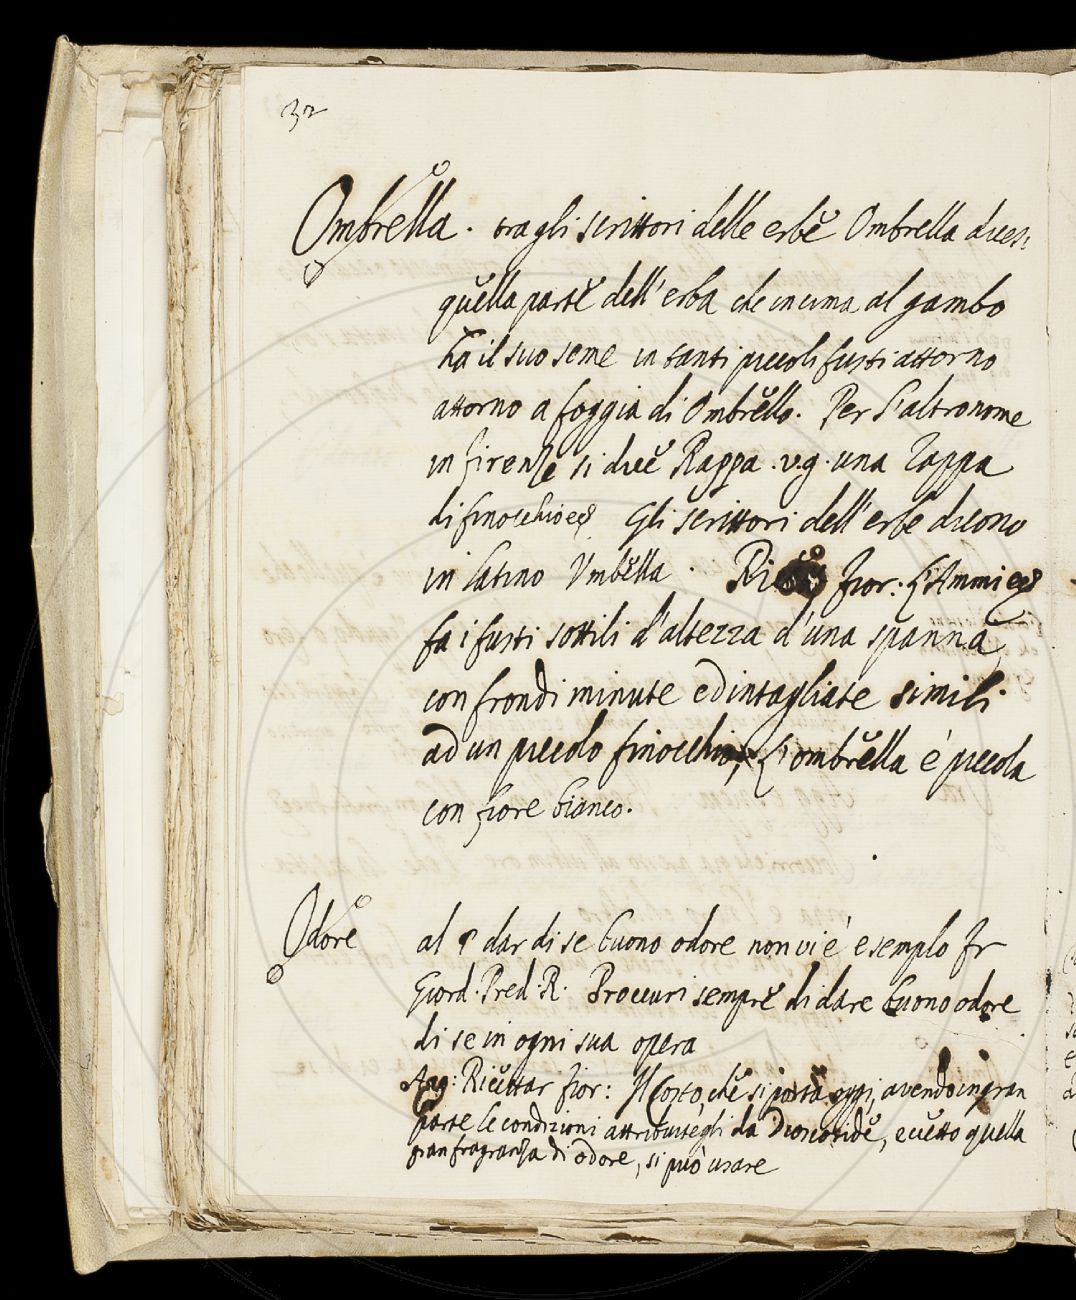 32
Ombrella. tra gli scrittori delle erbe Ombrella dicesi
quella parte dell'erba che in cima al gambo
ha il suo seme in tanti piccoli fusti attorno
attorno a foggia di Ombrello. Per l'altro nome
in firenze si dice Rappa. v.g. una rappa
di finocchio ec. Gli scrittori dell'erbe dicono
in latino Vmbella. Fior: L'Ammi ec.
fa i fusti sottili d'altezza d'una spanna
con frondi minute ed intagliate simili
ad un piccolo finocchio, L'ombrella è piccola
con fiore bianco.
Odore al dar di se buono odore non vi è esemplo Fr
Giord. Pred. R. Proccuri sempre di dare buono odore
di se in ogni sua opera
Agg: Ricettar fior: Il Costo, che si porta oggi, avendo in gran
parte le condizioni attribuitegli da Dioscoride, eccetto quella
gran fragranza di odore, si può usare